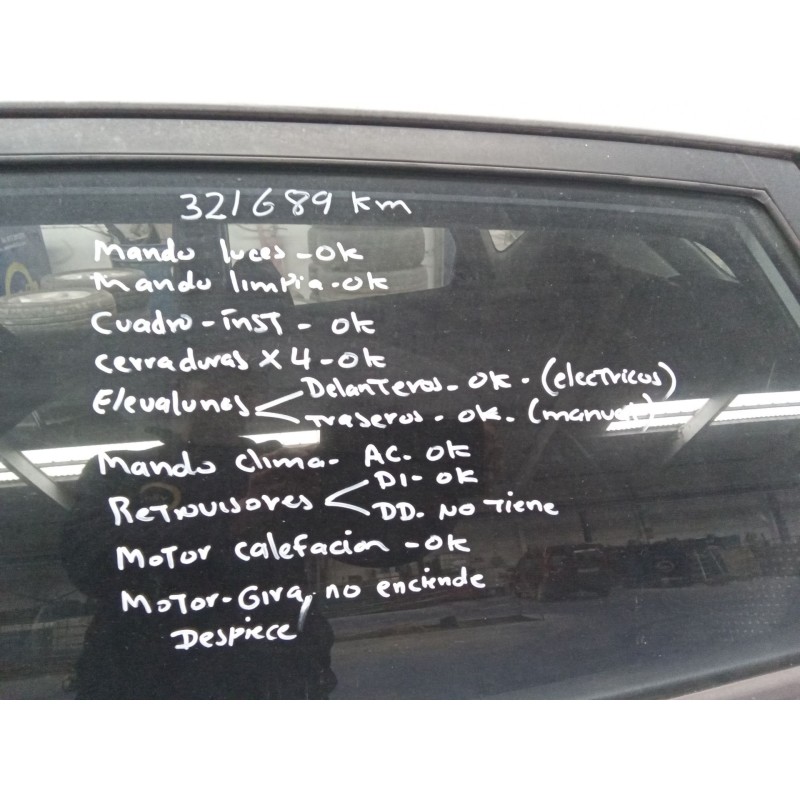 321689 km
Mando luces - OK
Mando limpia - OK
Cuadro - inst - OK
cerraduras x 4 - OK
Elevalunas
Delanteros - OK - (electricos)
Traseros - OK. (manual)
Mando clima - AC. OK
Retrovisores
DI - OK
DD. NO Tiene
Motor calefacion - OK
Motor - Gira, no enciende
Despiece